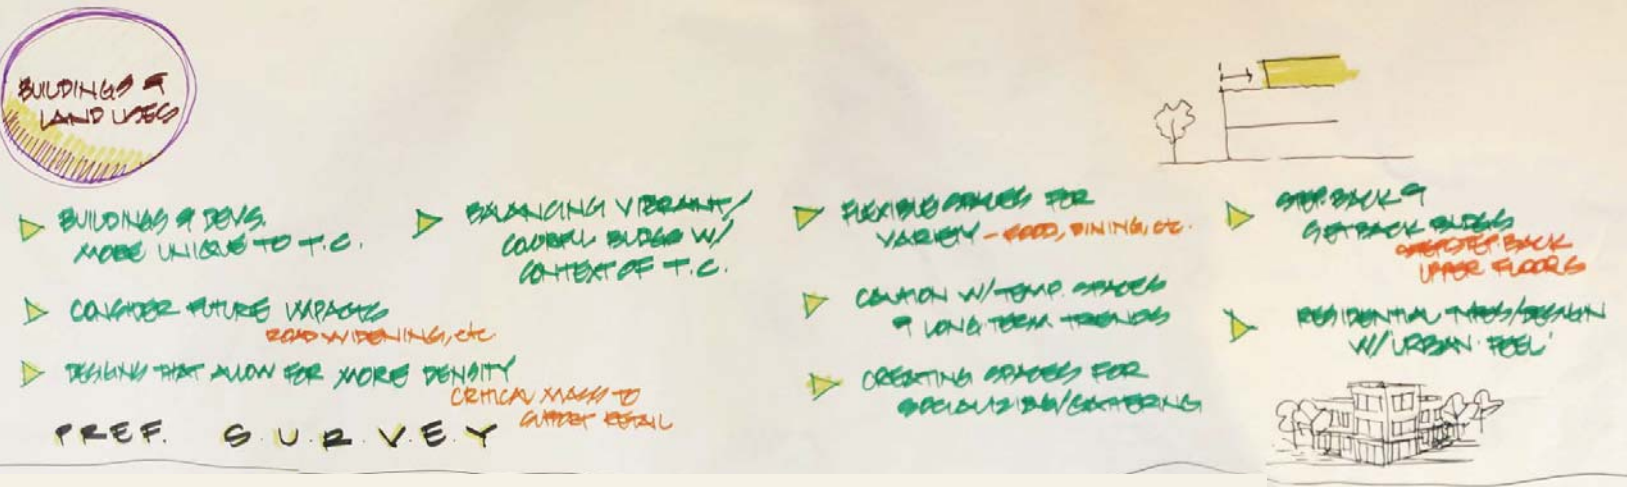 BUILDINGS &
LAND USES
BUILDINGS & DEVS.
MORE UNIQUE TO T.C.
CONSIDER FUTURE IMPACTS
ROAD WIDENING, etc.
DESIGNS THAT ALLOW FOR MORE DENSITY
CRITICAL MASS TO
SUPPORT RETAIL
PREF. S.U.R.V.E.Y
BALANCING VIBRANT/
COLORFUL BLDGS W/
CONTEXT OF T.C.
FLEXIBLE SPACES FOR
VARIETY - FOOD, DINING, etc.
CAUTION W/ TEMP. SPACES
& LONG TERM TRENDS
CREATING SPACES FOR
SOCIALIZING/GATHERING
STEP.BACK &
SETBACK BLDGS
STEP BACK
UPPER FLOORS
RESIDENTIAL TYPES/DESIGN
W/ URBAN 'FEEL'